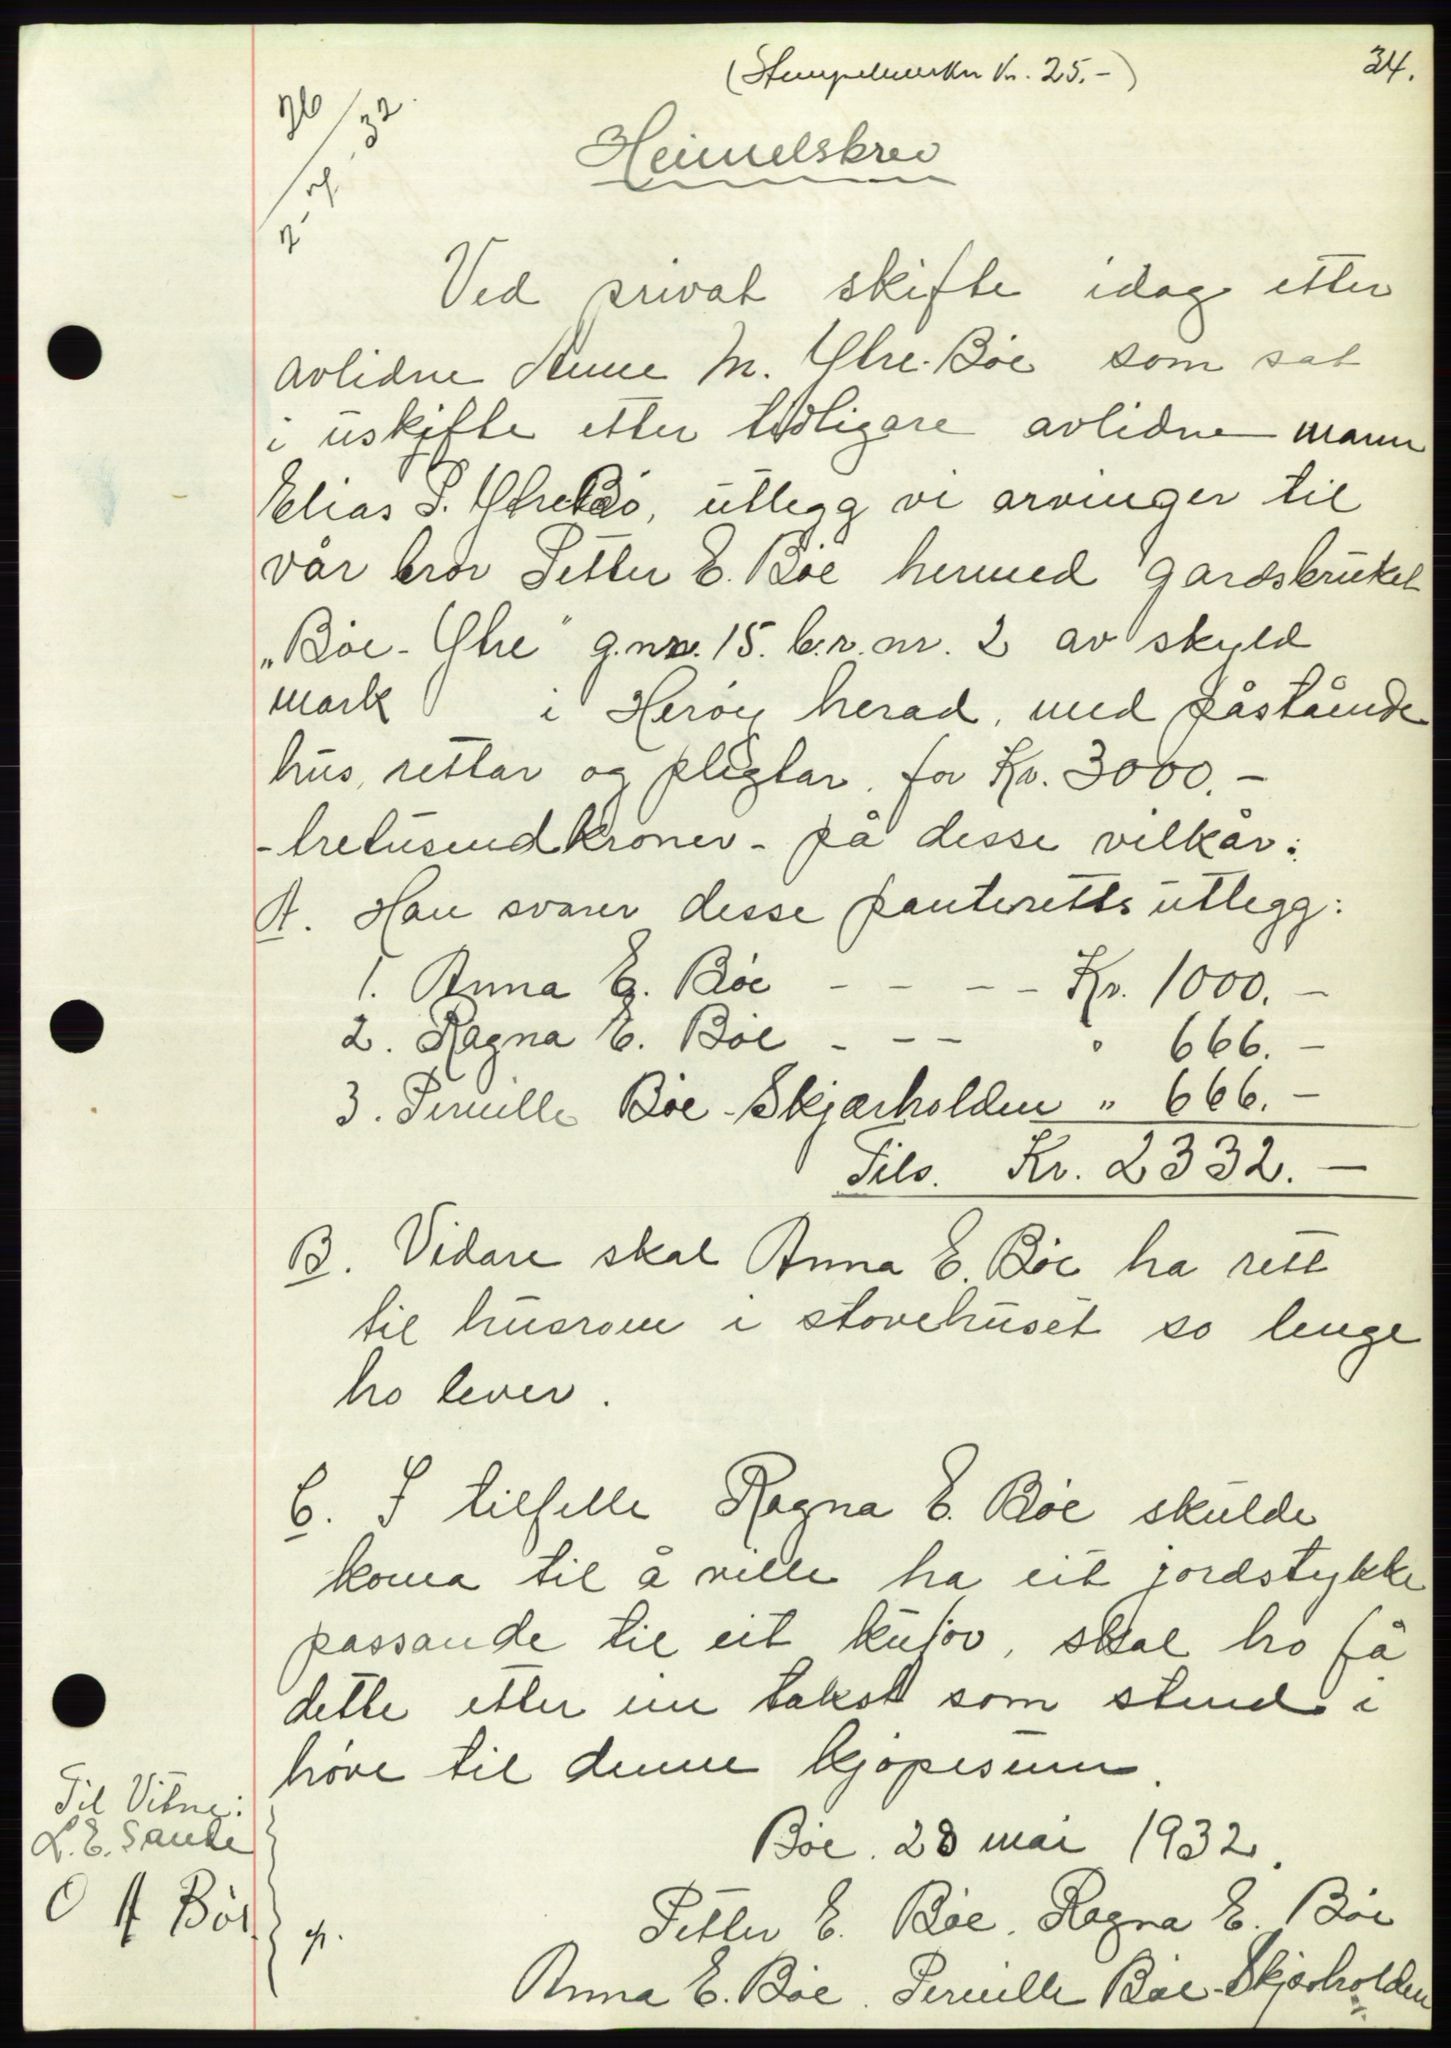 (Stempelmerke kr. 25.-)
34.
26/7-32.
Heimelsbrev
Ved privat skifte idag etter
avlidne Anne M. Ytre-Böe som sat
i uskifte etter tidligare avlidne mann
Elias P. Ytre Bö, utlegg vi arvinger til
vår bror Petter E. Böe hermed gardsbruket
„Böe-Ytre" g.nr. 15. b.r.nr. 2 av skyld
mark i Heröy herad, med påståande
hus, rettar og pligtar, for Kr. 3000.-
- tretusend kroner - på desse vilkår:
A. Han svarer desse panteretts utlegg:
1. Anna E. Böe - - - - Kr. 1000.-
2. Ragna E. Böe - - - " 666.-
3. Pernille Böe-Skjærholden " 666.-
Tils. Kr. 2332.-
B. Vidare skal Anna E. Böe ha rett
til husrom i stovehuset so lenge
ho lever.
C. I tilfelle Ragna E. Böe skulde
koma til å ville ha eit jordstykke
passande til eit kufor, skal ho få
dette etter ein takst som stend i
höve til denne kjöpesum.
Böe. 28 mai 1932.
Petter E. Böe. Ragna E. Böe
Anna E. Böe. Pernille Böe-Skjærholden
Til Vitne:
L. E. Sande
O A Böe